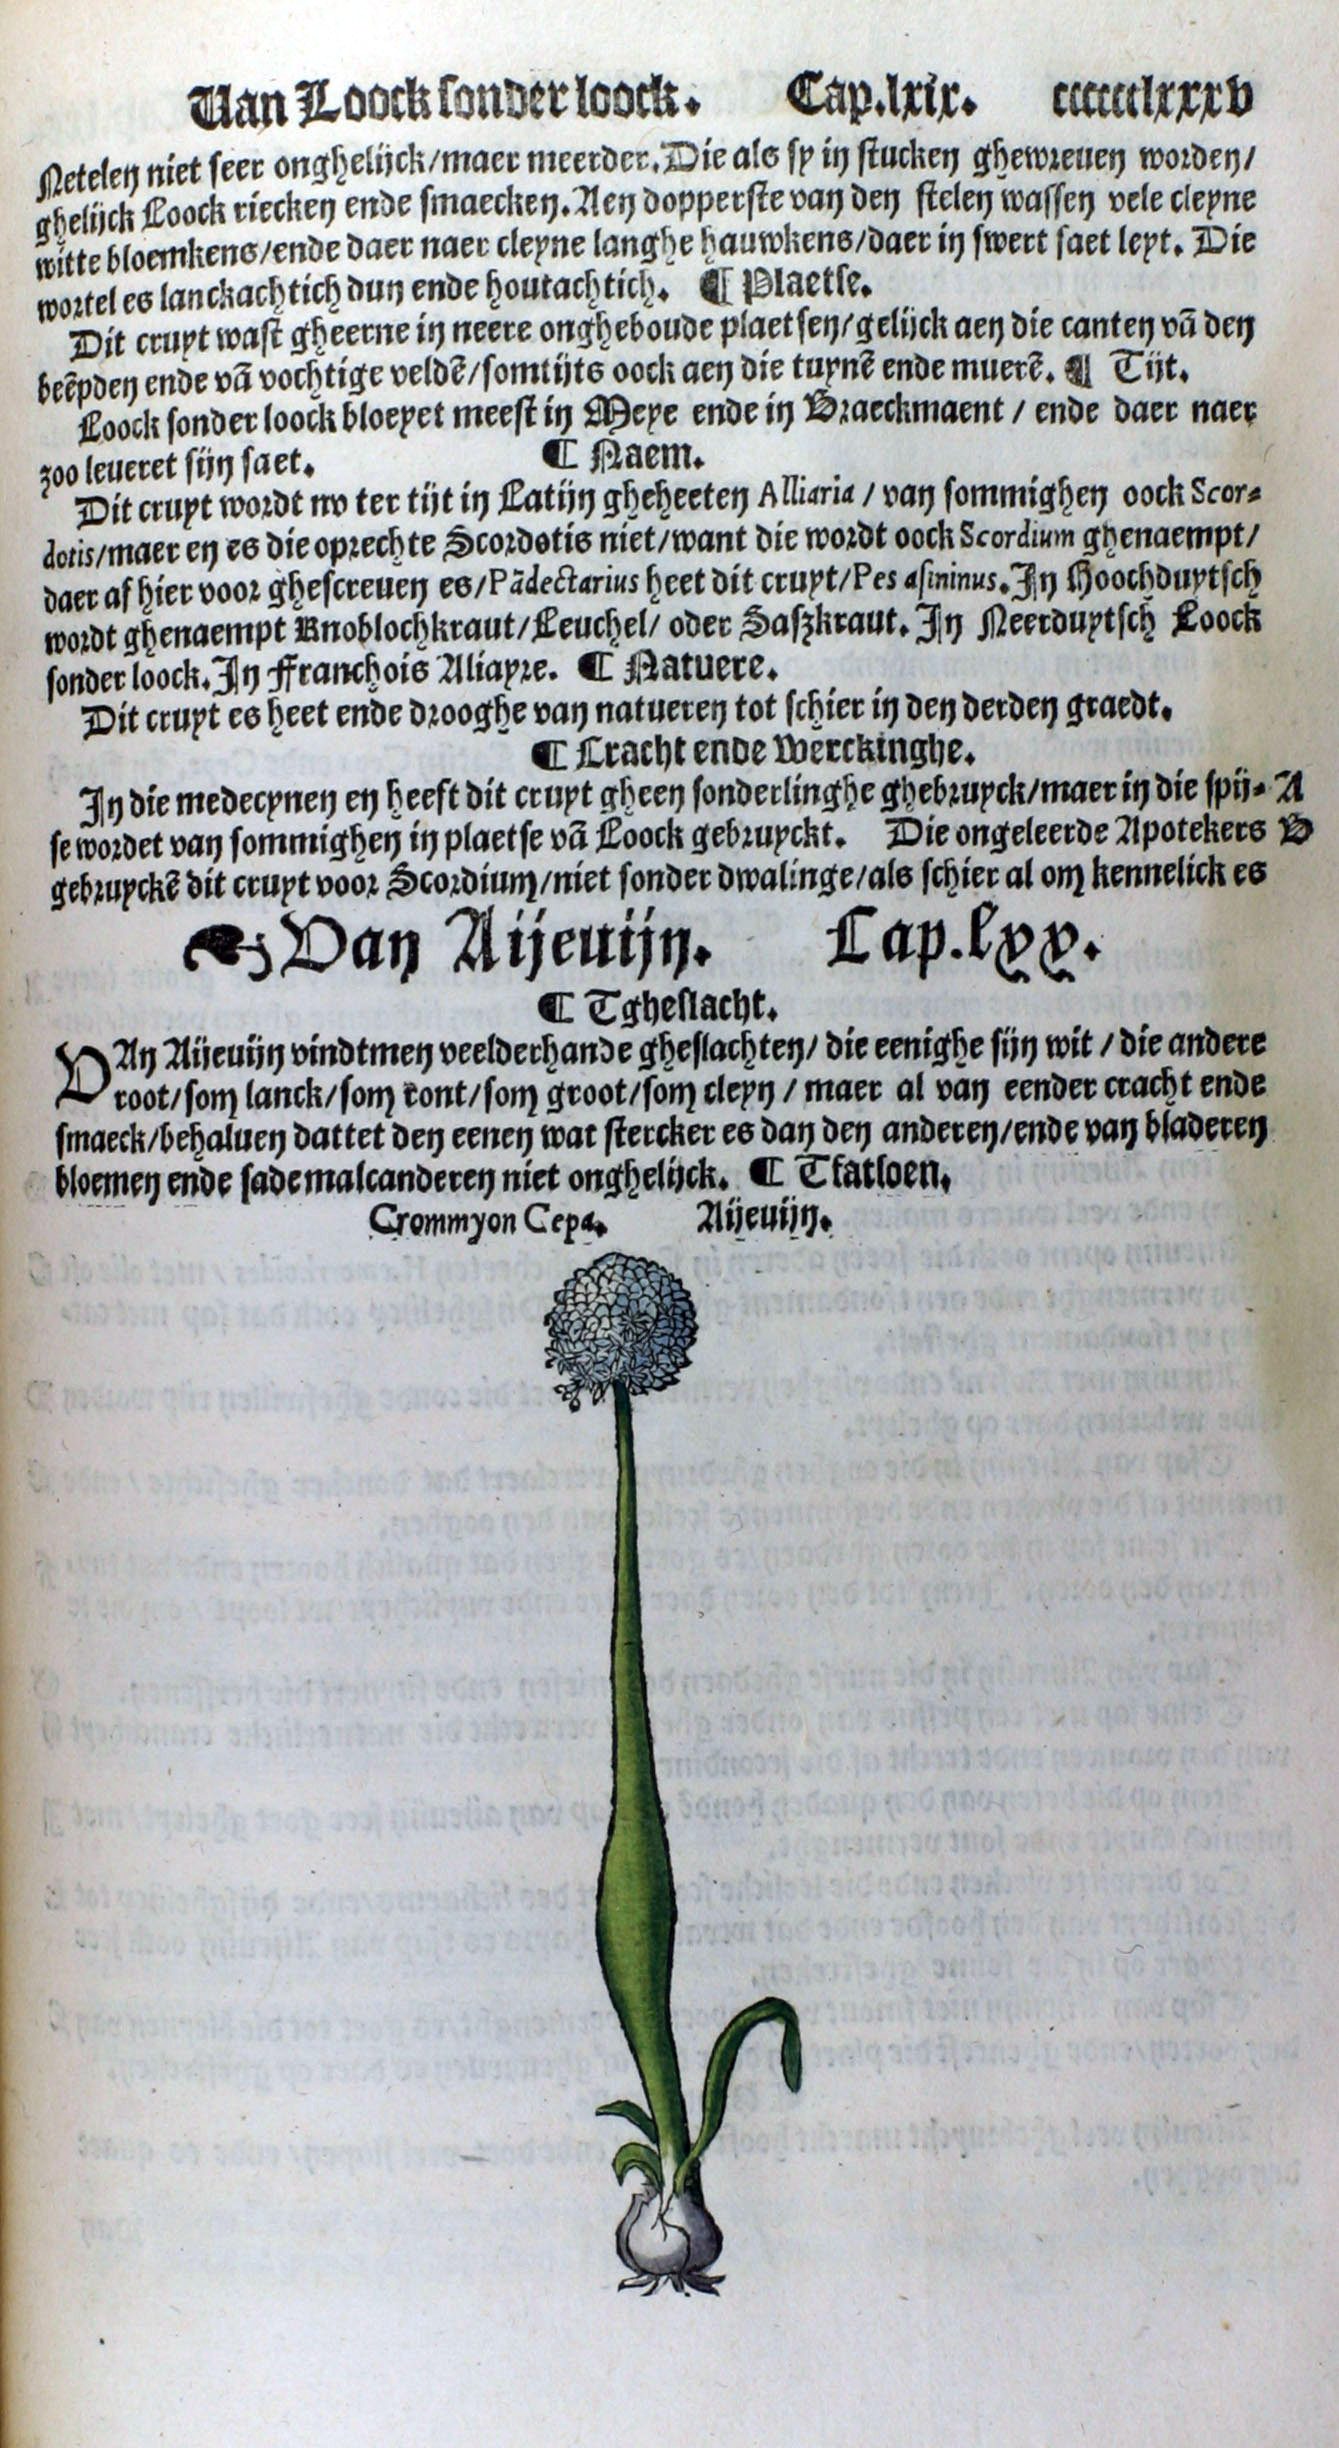 Van Loock sonder loock. Cap.lxix. ccccclxxxv
Netelen niet seer onghelijck/maer meerder. Die als sy in stucken ghewreuen worden/
ghelijck Loock riecken ende smaecken. Aen dopperste van den stelen wassen vele cleyne
witte bloemkens/ende daer naer cleyne langhe hauwkens/daer in swert saet leyt. Die
wortel es lanckachtich dun ende houtachtich. ¶ Plaetse.
Dit cruyt wast gheerne in neere ongheboude plaetsen/gelijck aen die canten vā den
beēpden ende vā vochtige veldē/somtijts oock aen die tuynē ende muerē. ¶ Tijt.
Loock sonder loock bloeyet meest in Meye ende in Braeckmaent / ende daer naer
zoo leueret sijn saet. ¶ Naem.
Dit cruyt wordt nv ter tijt in Latijn gheheeten Alliaria / van sommighen oock Scor-
dotis/maer en es die oprechte Scordotis niet/want die wordt oock Scordium ghenaempt/
daer af hier voor ghescreuen es/Pādectarius heet dit cruyt/Pes asininus. In Hoochduytsch
wordt ghenaempt Knoblochkraut/Leuchel/ oder Saszkraut. In Neerduytsch Loock
sonder loock. In Franchois Aliayre. ¶ Natuere.
Dit cruyt es heet ende drooghe van natueren tot schier in den derden graedt.
¶ Cracht ende Werckinghe.
In die medecynen en heeft dit cruyt gheen sonderlinghe ghebruyck/maer in die spij- A
se wordet van sommighen in plaetse vā Loock gebruyckt. Die ongeleerde Apotekers B
gebruyckē dit cruyt voor Scordium/niet sonder dwalinge/als schier al om kennelick es
Van Aijeuijn. Cap.lxx.
¶ Tgheslacht.
VAn Aijeuijn vindtmen veelderhande gheslachten/ die eenighe sijn wit / die andere
root/som lanck/som ront/som groot/som cleyn / maer al van eender cracht ende
smaeck/behaluen dattet den eenen wat stercker es dan den anderen/ende van bladeren
bloemen ende sade malcanderen niet onghelijck. ¶ Tfatsoen.
Crommyon Cepa. Aijeuijn.